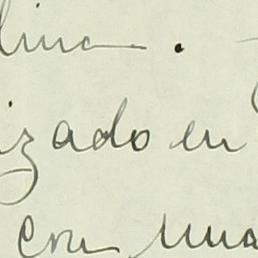 lina.
izado en
con una